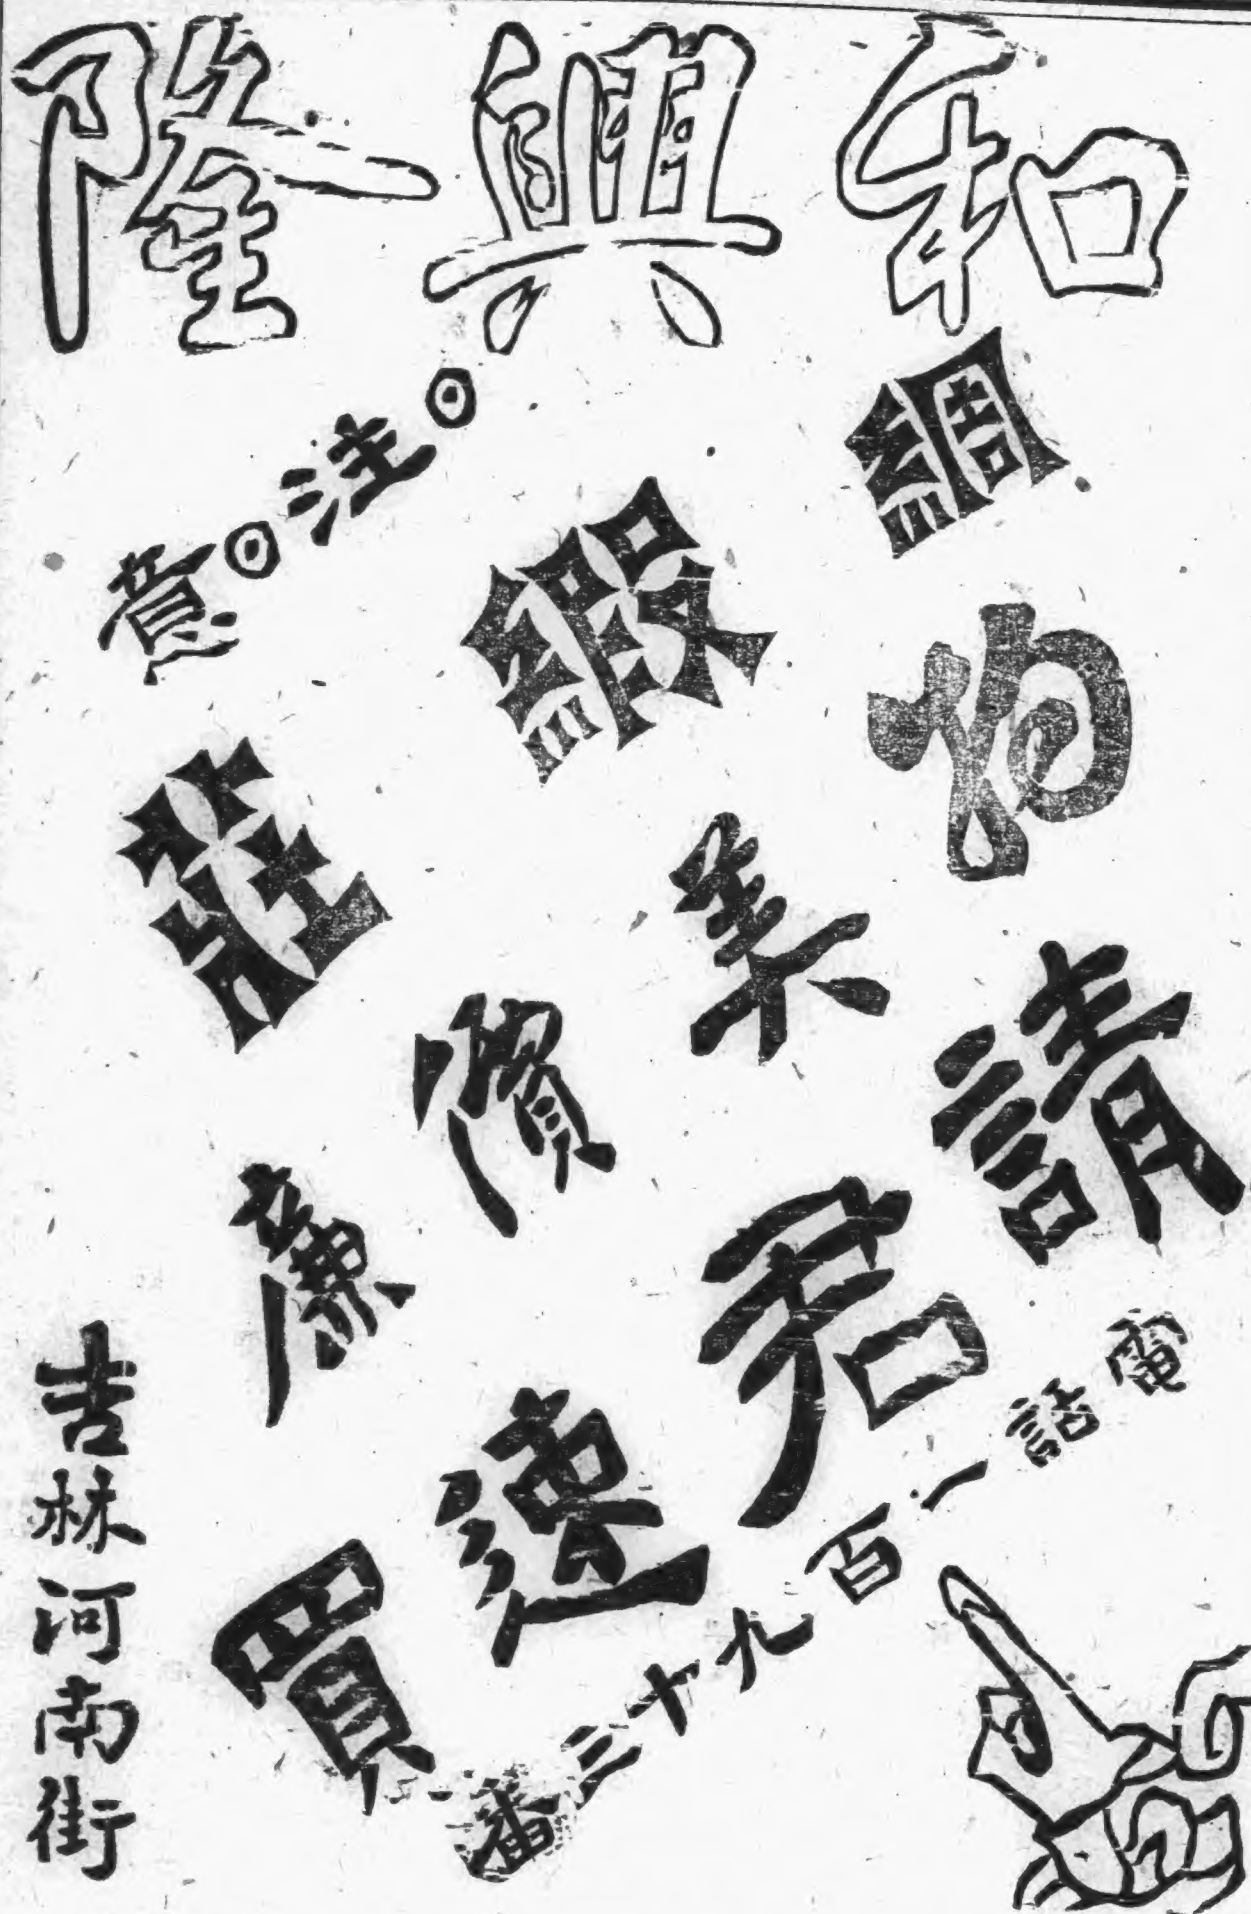 和興隆
◎注◎意
綢緞莊
物美價廉
請君速買
電話一百九十三番
吉林河南街